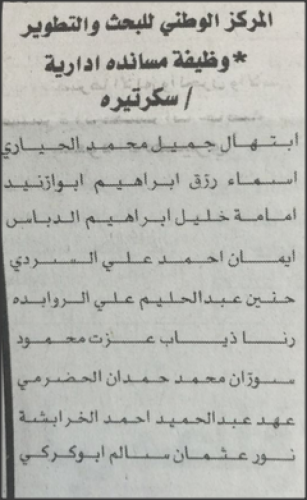 المركز الوطني للبحث والتطوير
*وظيفة مسانده ادارية
/ سكرتيره
ابتهال جميل محمد الحياري
اسماء رزق ابراهيم ابوازنيد
امامة خليل ابراهيم الدباس
ايمان احمد علي السردي
حنين عبدالحليم علي الروابده
رنا ذياب عزت محمود
سوزان محمد حمدان الحضرمي
عهد عبدالحميد احمد الخرابشة
نور عثمان سالم ابوكركي